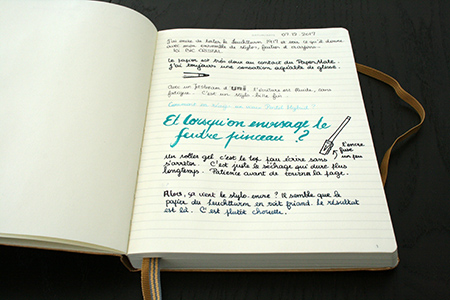 09.10.2017
J'ai envie de tester le Leuchtturm 1917 et voir ce qu'il donne
avec mon ensemble de stylos, feutres et crayons...
Le papier est très doux au contact du PaperMate.
J'ai toujours une sensation agréable de glisse.
Avec un feutre uni, l'écriture est fluide, sans
fatigue. C'est un stylo fin.
Et lorsqu'on envisage le
feutre pinceau ?
L'encre
fuse
un peu
Un roller gel c'est le top pour écrire sans
s'arrêter. C'est juste le séchage qui dure plus
longtemps. Patience avant de tourner la page.
Alors, ça vient le stylo-encre ? Il semble que le
papier du Leuchtturm en soit friand. Le résultat
est là. C'est plutôt chouette.
1